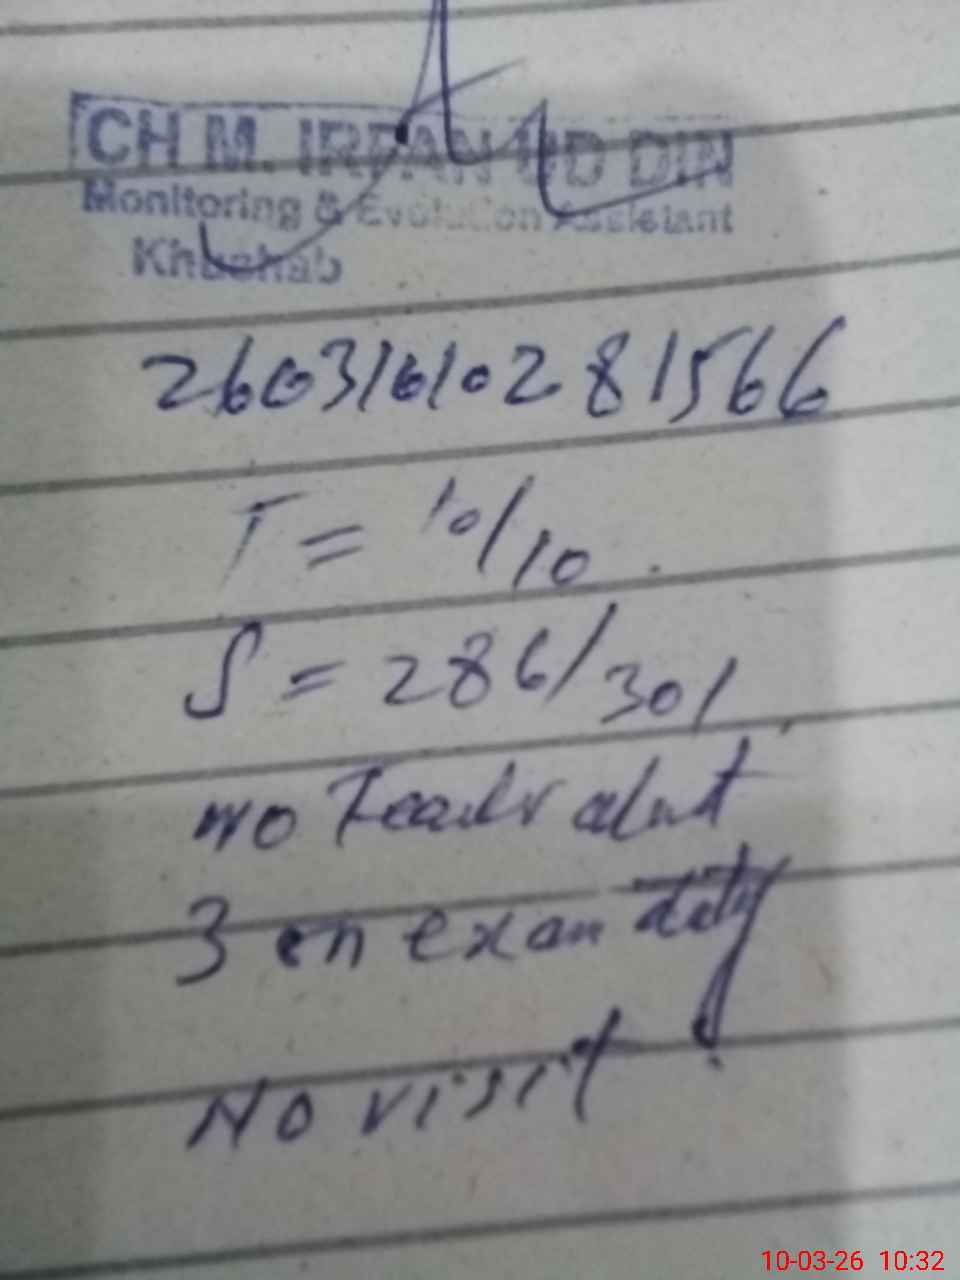 CH M. IRFAN UD DIN
Monitoring & Evolution Assistant
Khushab
26031610281566
T = 10/10
S = 286/301
no
3 on exam duty
No visit
10-03-26 10:32